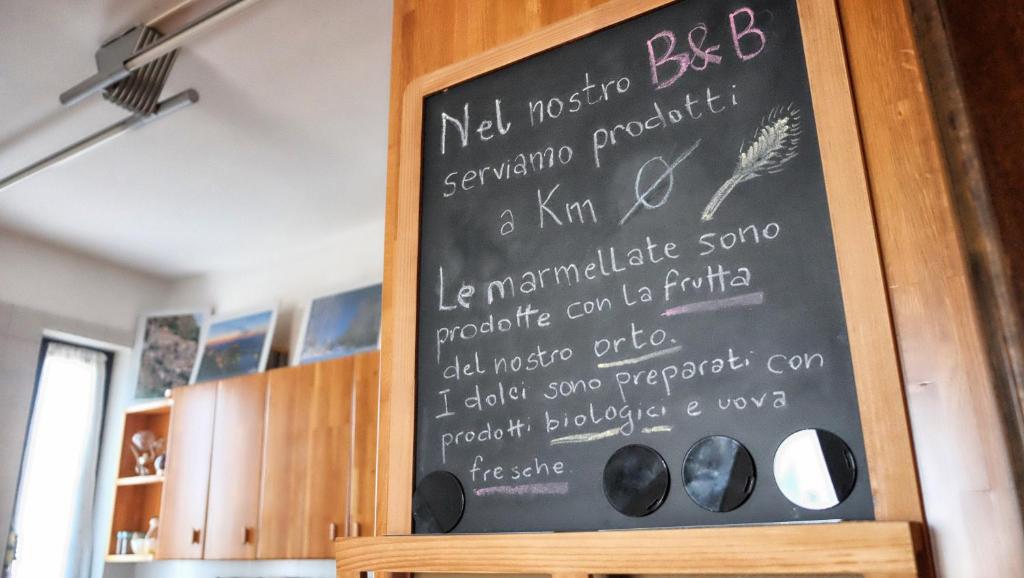 Nel nostro B&B
serviamo prodotti
a Km 0
Le marmellate sono
prodotte con la frutta
del nostro orto.
I dolci sono preparati con
prodotti biologici e uova
fresche